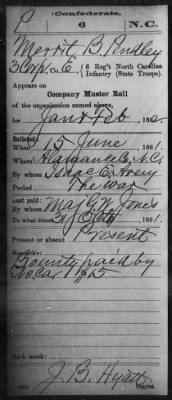 Confederate.
P 6 N.C.
Merrit B. Pendley
3 Corp, Co. E, 6 Reg't North Carolina
Infantry (State Troops).
Appears on
Company Muster Roll
of the organization named above,
for Jan & Feb, 1862.
Enlisted:
When 15 June, 1861.
Where Alamance Co, N.C.
By whom Isaac E. Avery
Period The war
Last paid:
By whom Maj. G. W. Jones
To what time 31 Octbr, 1861.
Present or absent Present
Remarks:
Bounty paid by
No Car $15
Book mark:
J. B. Hyatt
Copyist.